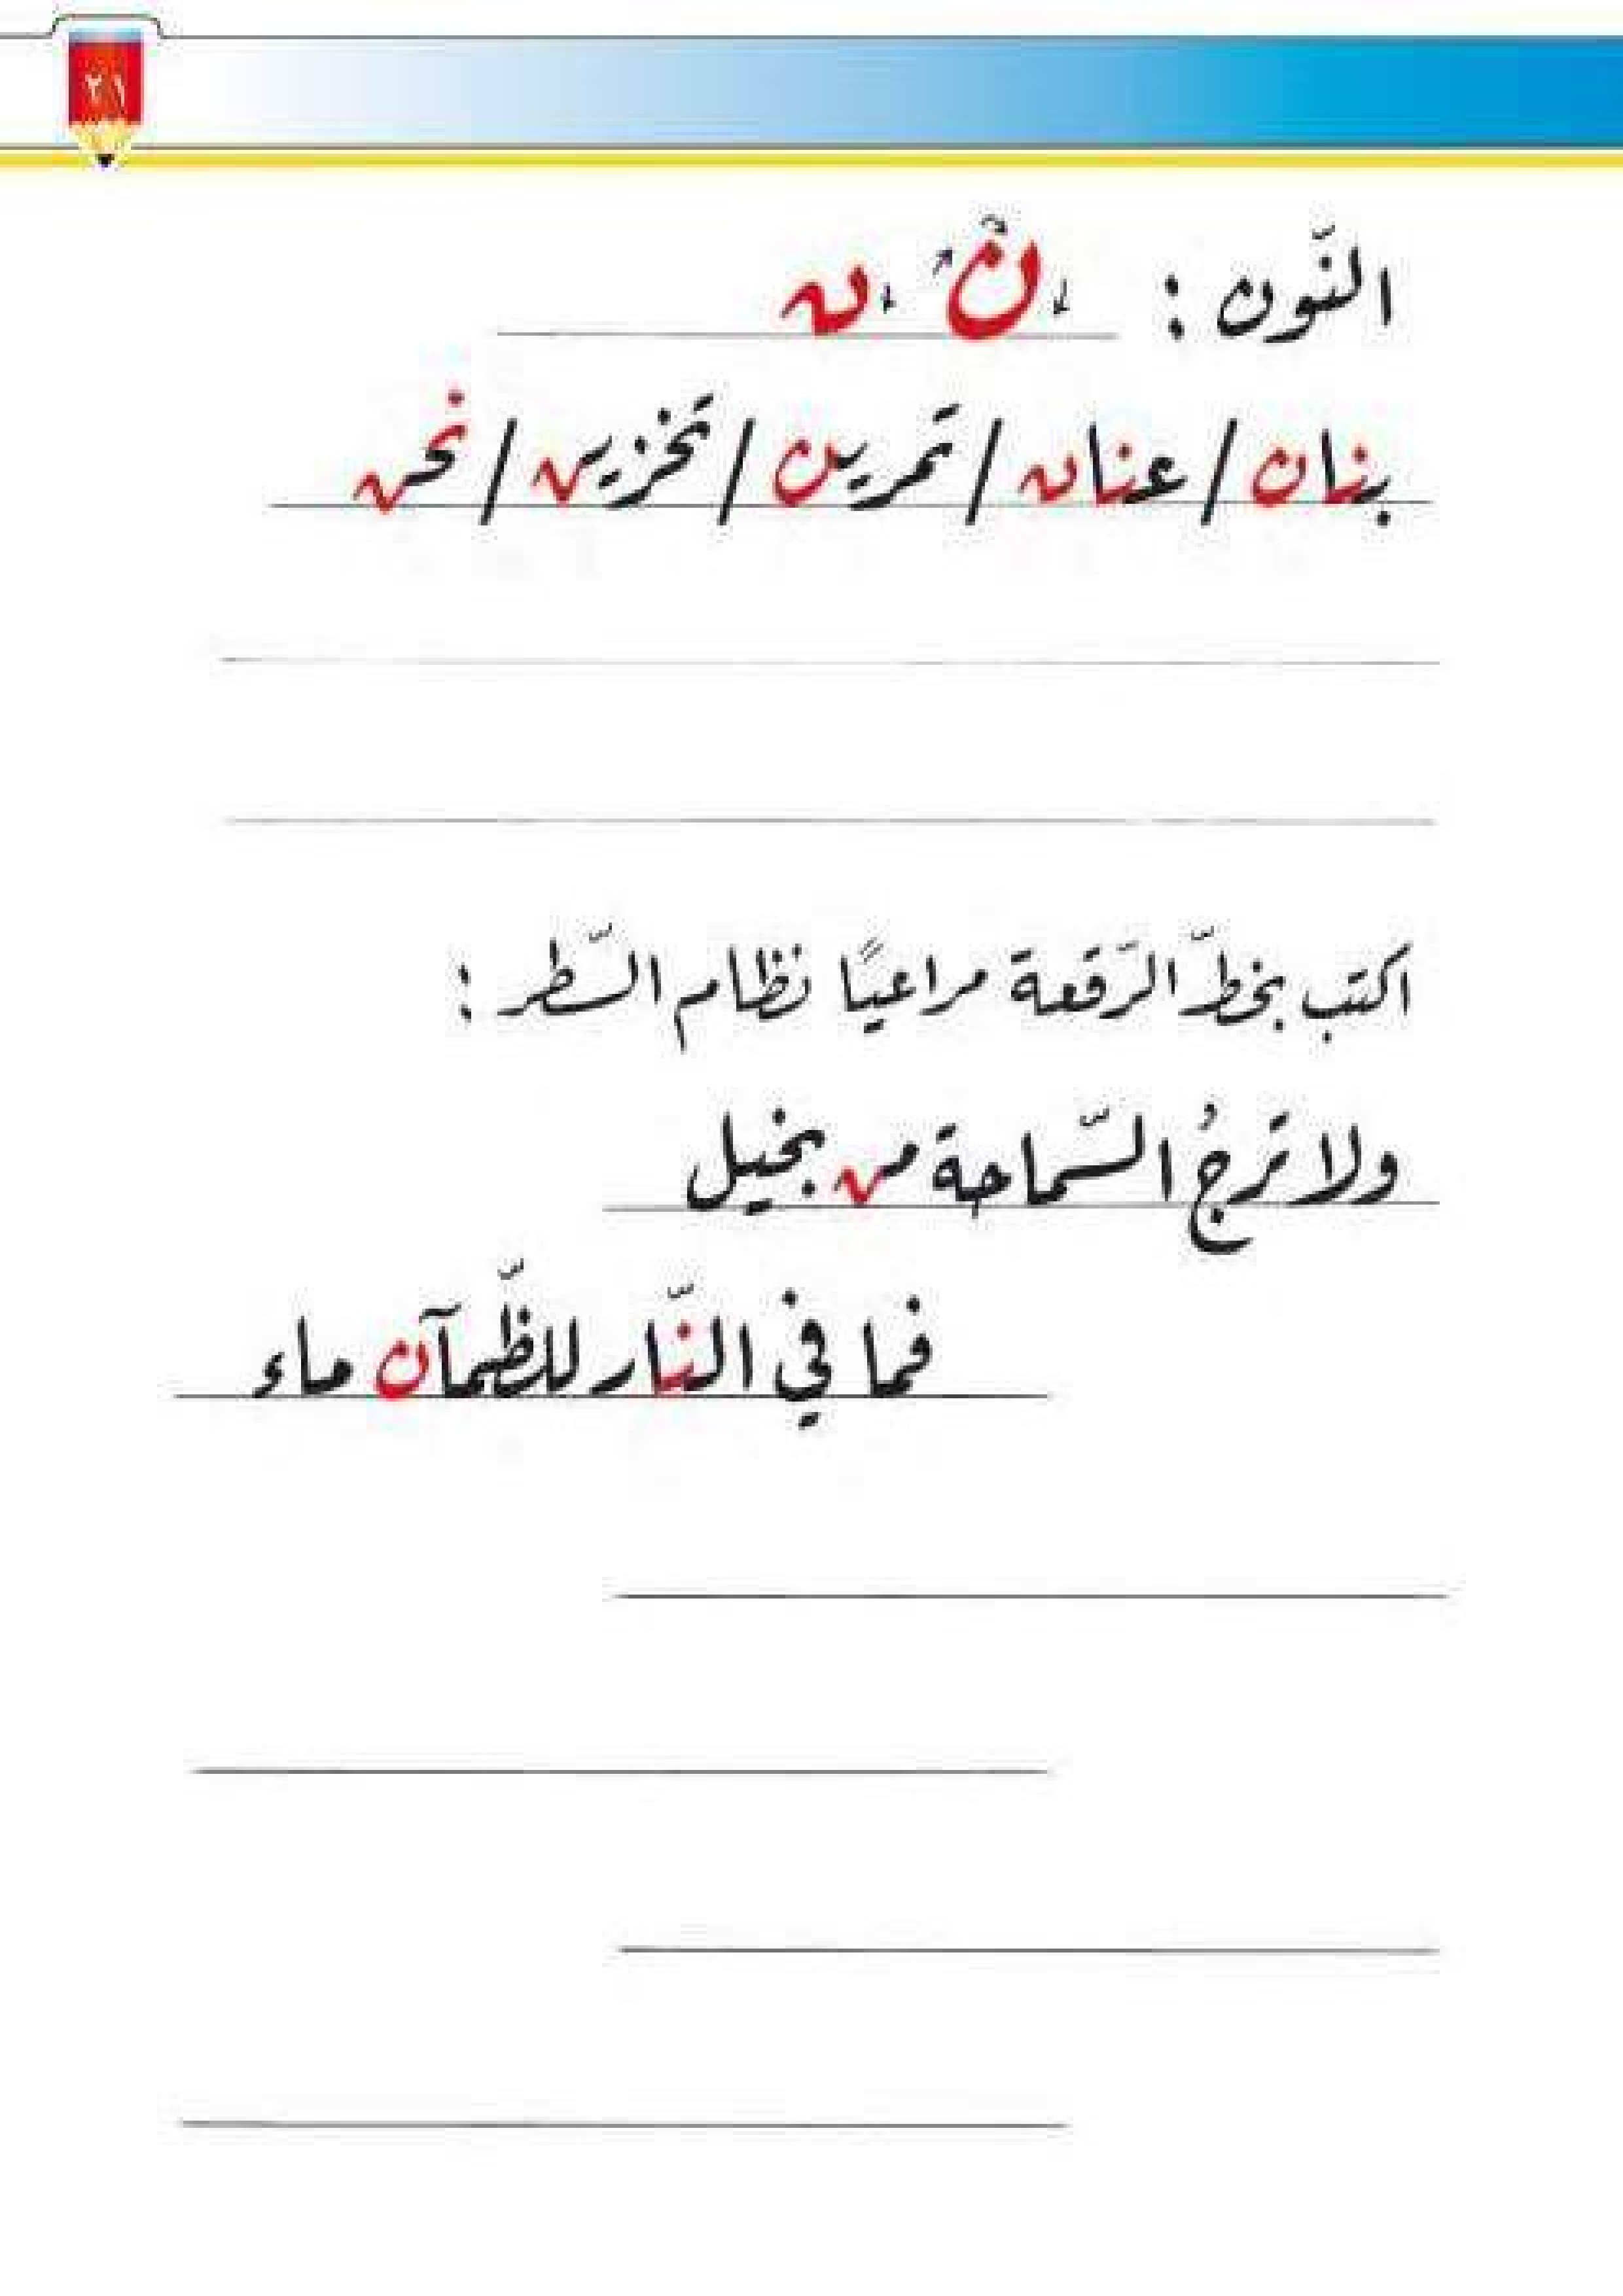 ٢١
النّون : ن ن
بنان / عنان / تمرين / تخزين / نحن
اكتب بخطّ الرّقعة مراعيًا نظام السّطر :
ولا ترجُ السّماحة من بخيل
فما في النّار للظّمآن ماء